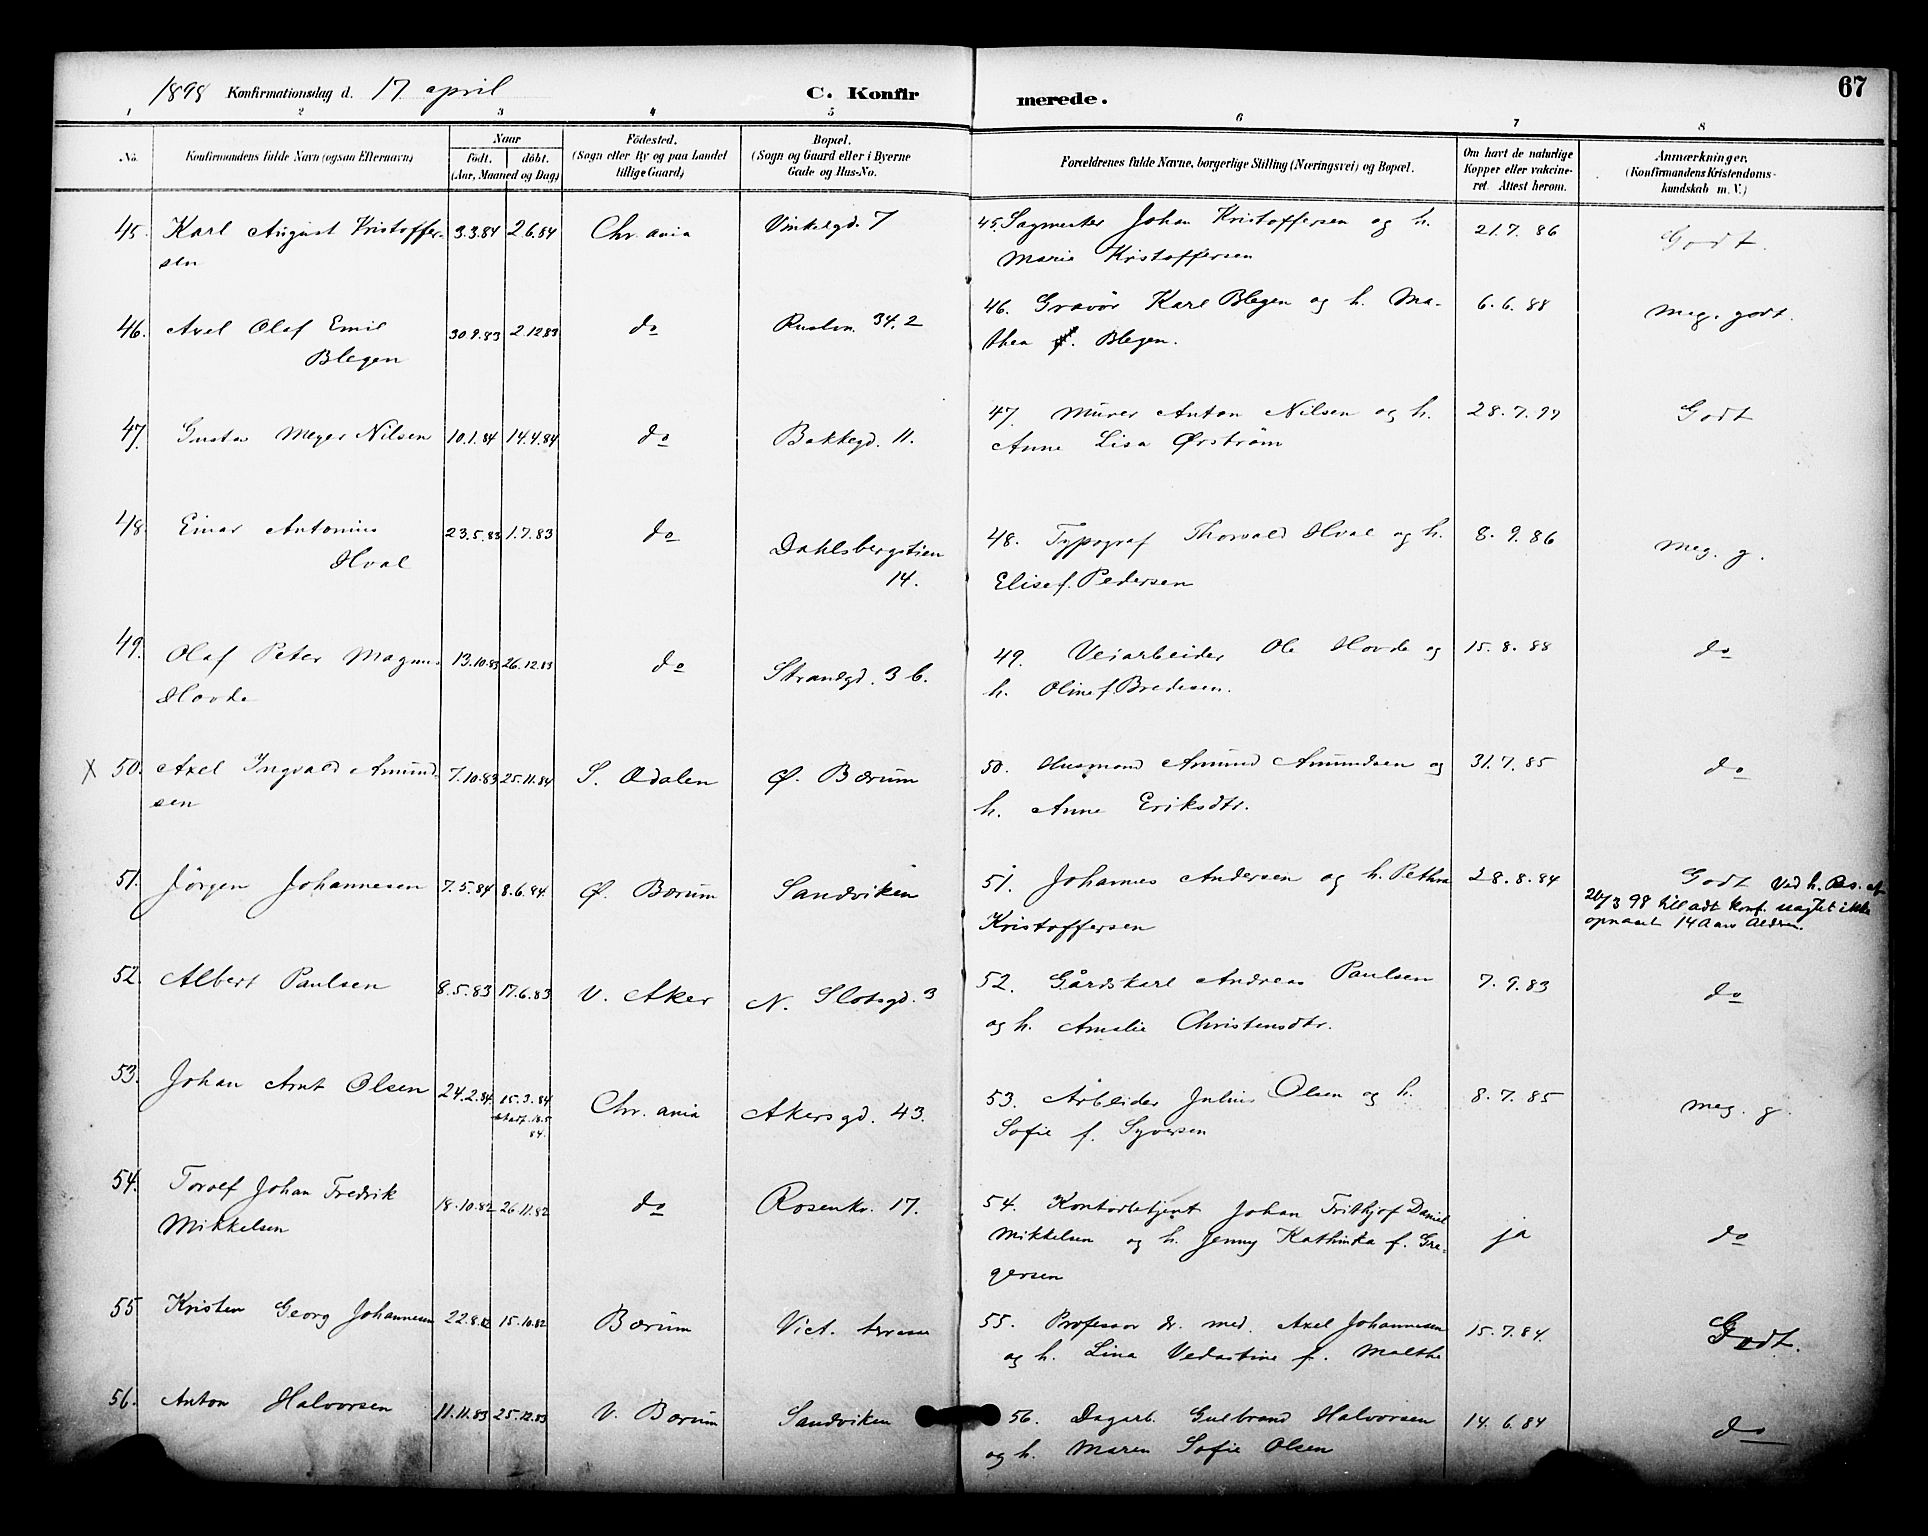 1898 Konfirmationsdag d. 17 april C. Konfirmerede. 67
1 2 3 4 5 6 7 8
No. Konfirmandens fulde Navn (ogsaa Efternavn) Naar født. døbt. (Aar, Maaned og Dag) Fødested. (Sogn eller By og paa Landet tillige Gaard) Bopæl. (Sogn og Gaard eller i Byerne Gade og Hus-No. Forældrenes fulde Navne, borgerlige Stilling (Næringsvei) og Bopæl. Om havt de naturlige Kopper eller vakcineret. Attest herom. Anmærkninger. (Konfirmandens Kristendomskundskab m. V.)
45. Karl August Kristoffer- 3.3.84 2.6.84 Chr.ania Vinkelgd. 7 45. Sagmester Johan Kristoffersen og h. 21.7.86 Godt.
sen Marie Kristoffersen
46. Axel Olaf Emil 30.9.83 2.12.83 do 34.2 46. Gravør Karl Blegen og h. Ma- 6.6.88 meg. godt.
Blegen thea f. Blegen.
47. Gustav Meyer Nilsen 10.1.84 14.4.84 do Bakkegd. 11. 47. Murer Anton Nilsen og h. 28.7.97 Godt
Anne Lisa Ørstrøm
48. Einar Antonius 23.5.83 1.7.83 do Dahlsbergstien 48. Typograf Thorvald Hval og h. 8.9.86 meg. g.
Hval 14. Elise f. Pedersen
49. Olaf Peter Magnus 13.10.83 26.12.83 do Strandgd. 3 b. 49. Veiarbeider Ole Hovde og 15.8.88 do
Hovde h. Oline f. Bredesen.
X 50. Axel Ingvald Amund- 7.10.83 25.11.84 S. Odalen Ø. Bærum 50. Husmand Amund Amundsen og 31.7.85 do
sen h. Anne Eriksdtr.
51. Jörgen Johannesen 7.5.84 8.6.84 Ø. Bærum Sandviken 51. Johannes Andersen og h. Pethra 28.8.84 Godt Ved h. Res. af
Kristoffersen 26/3 98 tilladt konf. uagtet ikke
opnaaet 14 Aars Alderen.
52. Albert Paulsen 8.5.83 17.6.83 V. Aker N. Slotsgd. 3 52. Gårdskarl Andreas Paulsen 7.9.83 do
og h. Amalie Christensdtr.
53. Johan Arnt Olsen 24.2.84 15.3.84 Chr.ania Akersgd. 43. 53. Arbeider Julius Olsen og h. 8.7.85 meg. g.
18.5
84. Sofie f. Syversen
54. Torolf Johan Fredrik 18.10.82 26.11.82 do Rosenkr. 17. 54. Kontorbetjent Johan Frithjof Daniel ja do
Mikkelsen Mikkelsen og h. Jenny Kathinka f. Gre-
gersen
55 Kristen Georg Johannesen 22.8.82 15.10.82 Bærum Vict. terasse 55. Professor dr. med. Axel Johannesen 15.7.84. Godt.
og h. Lina Vedastine f. Malthe
56. Anton Halvorsen 11.11.83 25.12.83 V. Bærum Sandviken 56. Dagarb. Gulbrand Halvorsen 14.6.84 do
og h. Maren Sofie Olsen